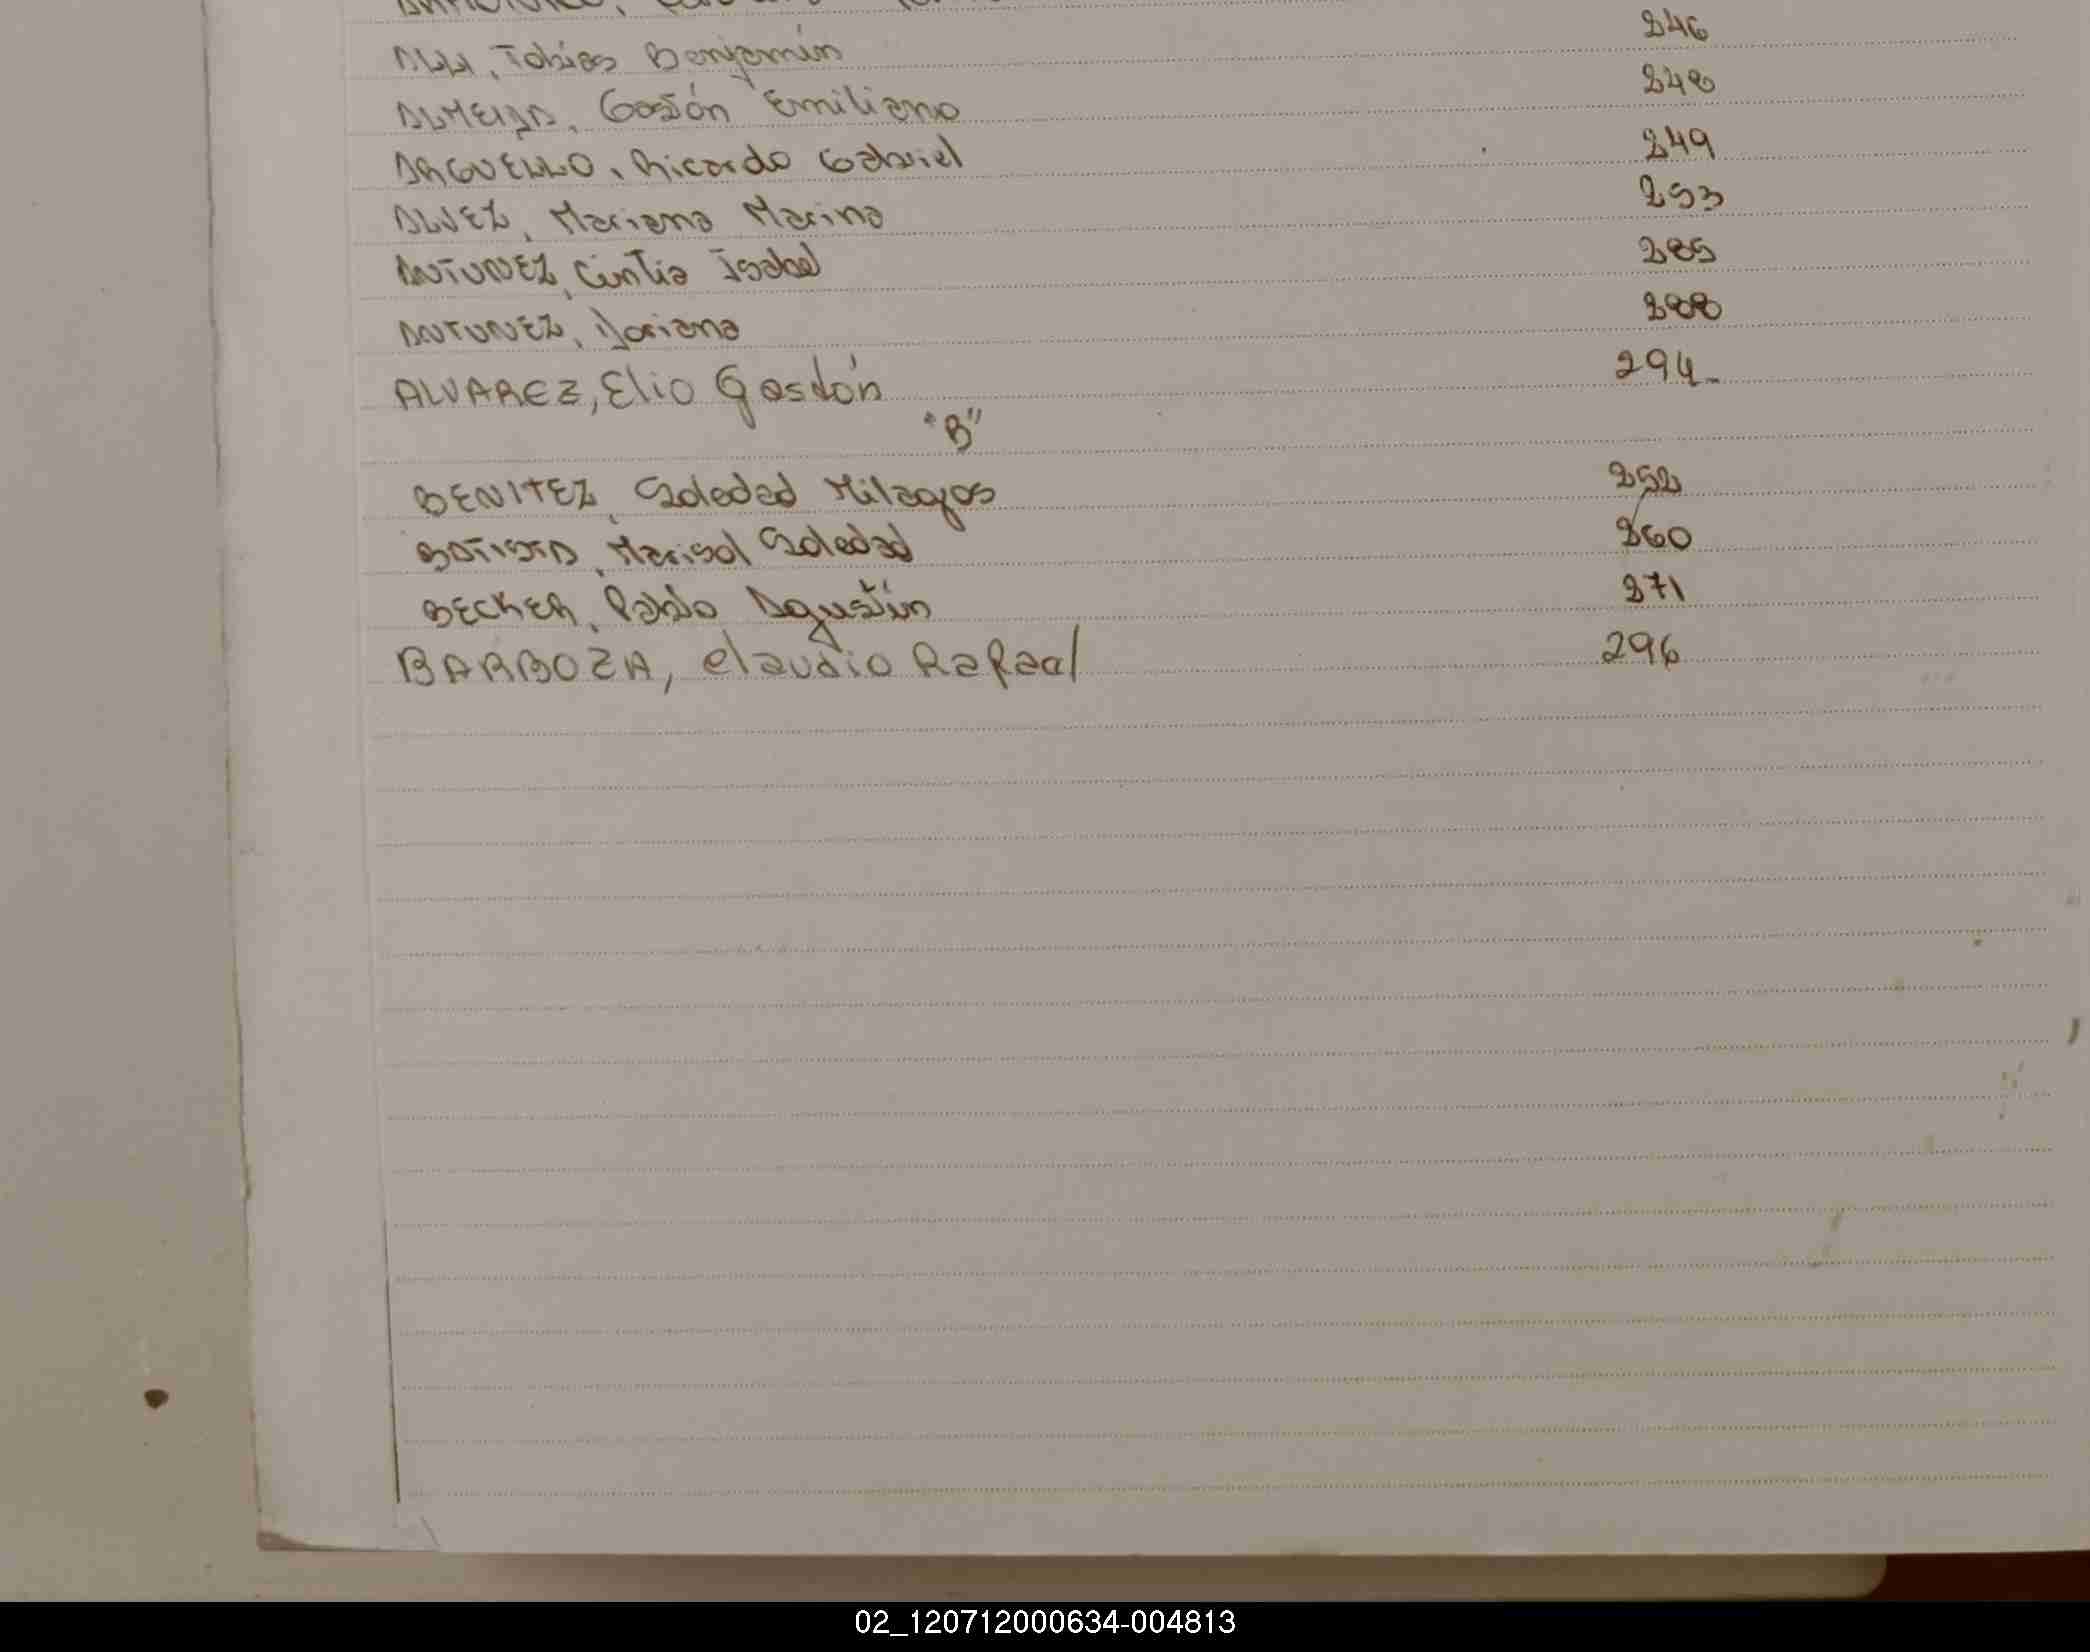 246
ALY, Tobías Benjamín
248
ALMEIDA, Gastón Emiliano
249
ARGUELLO, Ricardo Gabriel
253
ALVEZ, Mariana Marina
285
ANTUNEZ, Cintia Isabel
288
ANTUNEZ, Dariana
294-
ALVAREZ, Elio Gastón
"B"
BENITEZ, Soledad Milagros 252
BATISTA, Marisol Soledad 260
BECKER, Pablo Agustín 271
BARBOZA, Claudio Rafael 296
02_120712000634-004813